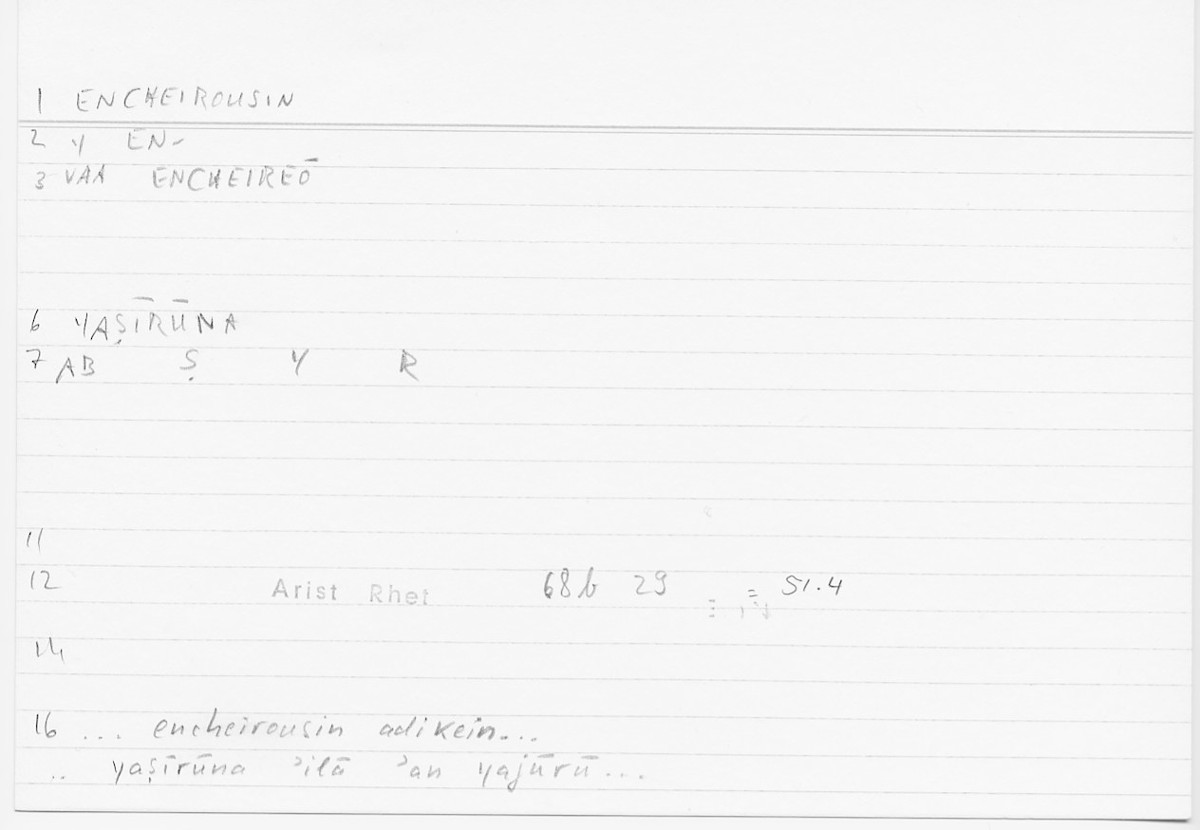 1 ENCHEIROUSIN
2 y EN-
3 VAA ENCHEIREŌ
6 YAṢĪRŪNA
7 AB Ṣ Y R
11
12 Arist Rhet 68b 29 = 51.4
14
16 ... encheirousin adikein...
.. yaṣīrūna ʾilā ʾan yajūrū...